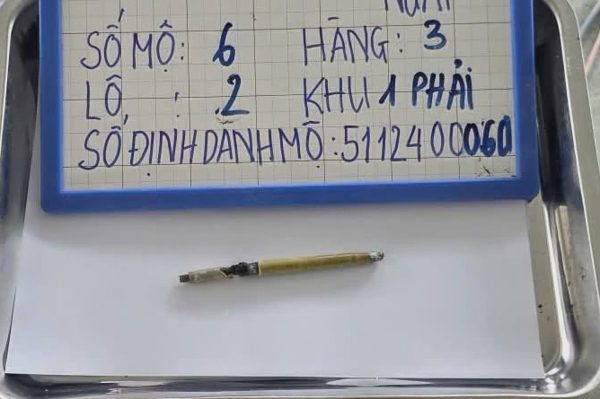 SỐ MỘ: 6 HÀNG: 3
LÔ : 2 KHU 1 PHẢI
SỐ ĐỊNH DANH MỘ: 5112400060